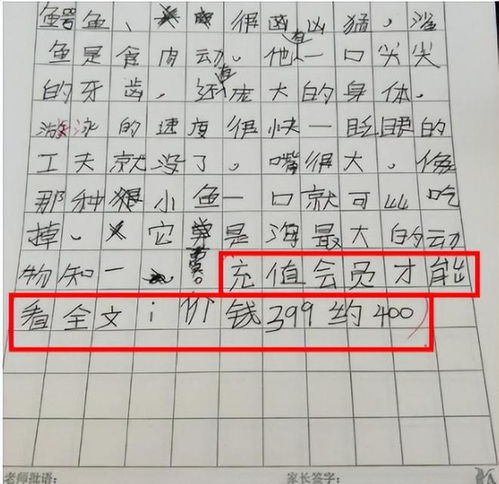 鳄鱼、很凶猛，鲨
鱼是食肉动。他有一口尖尖
的牙齿，还有庞大的身体。
游泳的速度很快一眨眼的
工夫就没了。嘴很大，像
那种狠小鱼一口就可以吃
掉、它算是海最大的动
物知一。充值会员才能
看全文i价钱399约400
老师批语：
家长签字：